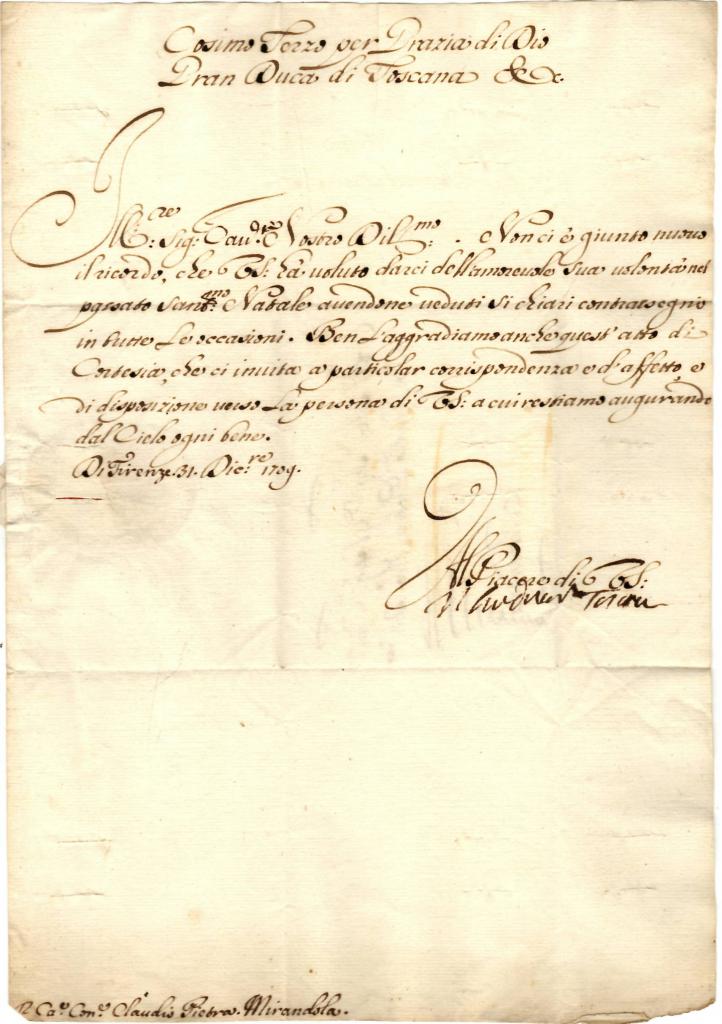 Cosimo Terzo per Grazia di Dio
Gran Duca di Toscana &c.
Ill.re Sig.r Cav.re Nostro Dil.mo. Non ci è giunto nuovo
il ricordo, che VS: hà voluto darci dell'amorevole sua volontà nel
passato Sant.mo Natale avendone veduti si chiari contrasegni
in tutte le occasioni. Ben l'aggradiamo anche quest'atto di
Cortesia, che ci invita a particolar corrispondenza e d'affetto, e
di disposizione verso la persona di VS: a cui restiamo augurando
dal Cielo ogni bene.
Di Firenze 31. Dic.re 1709.
Al Piacere di VS:
Il Gran Duca di Toscana
Ca.r Con.e Claudio Pietra. Mirandola.